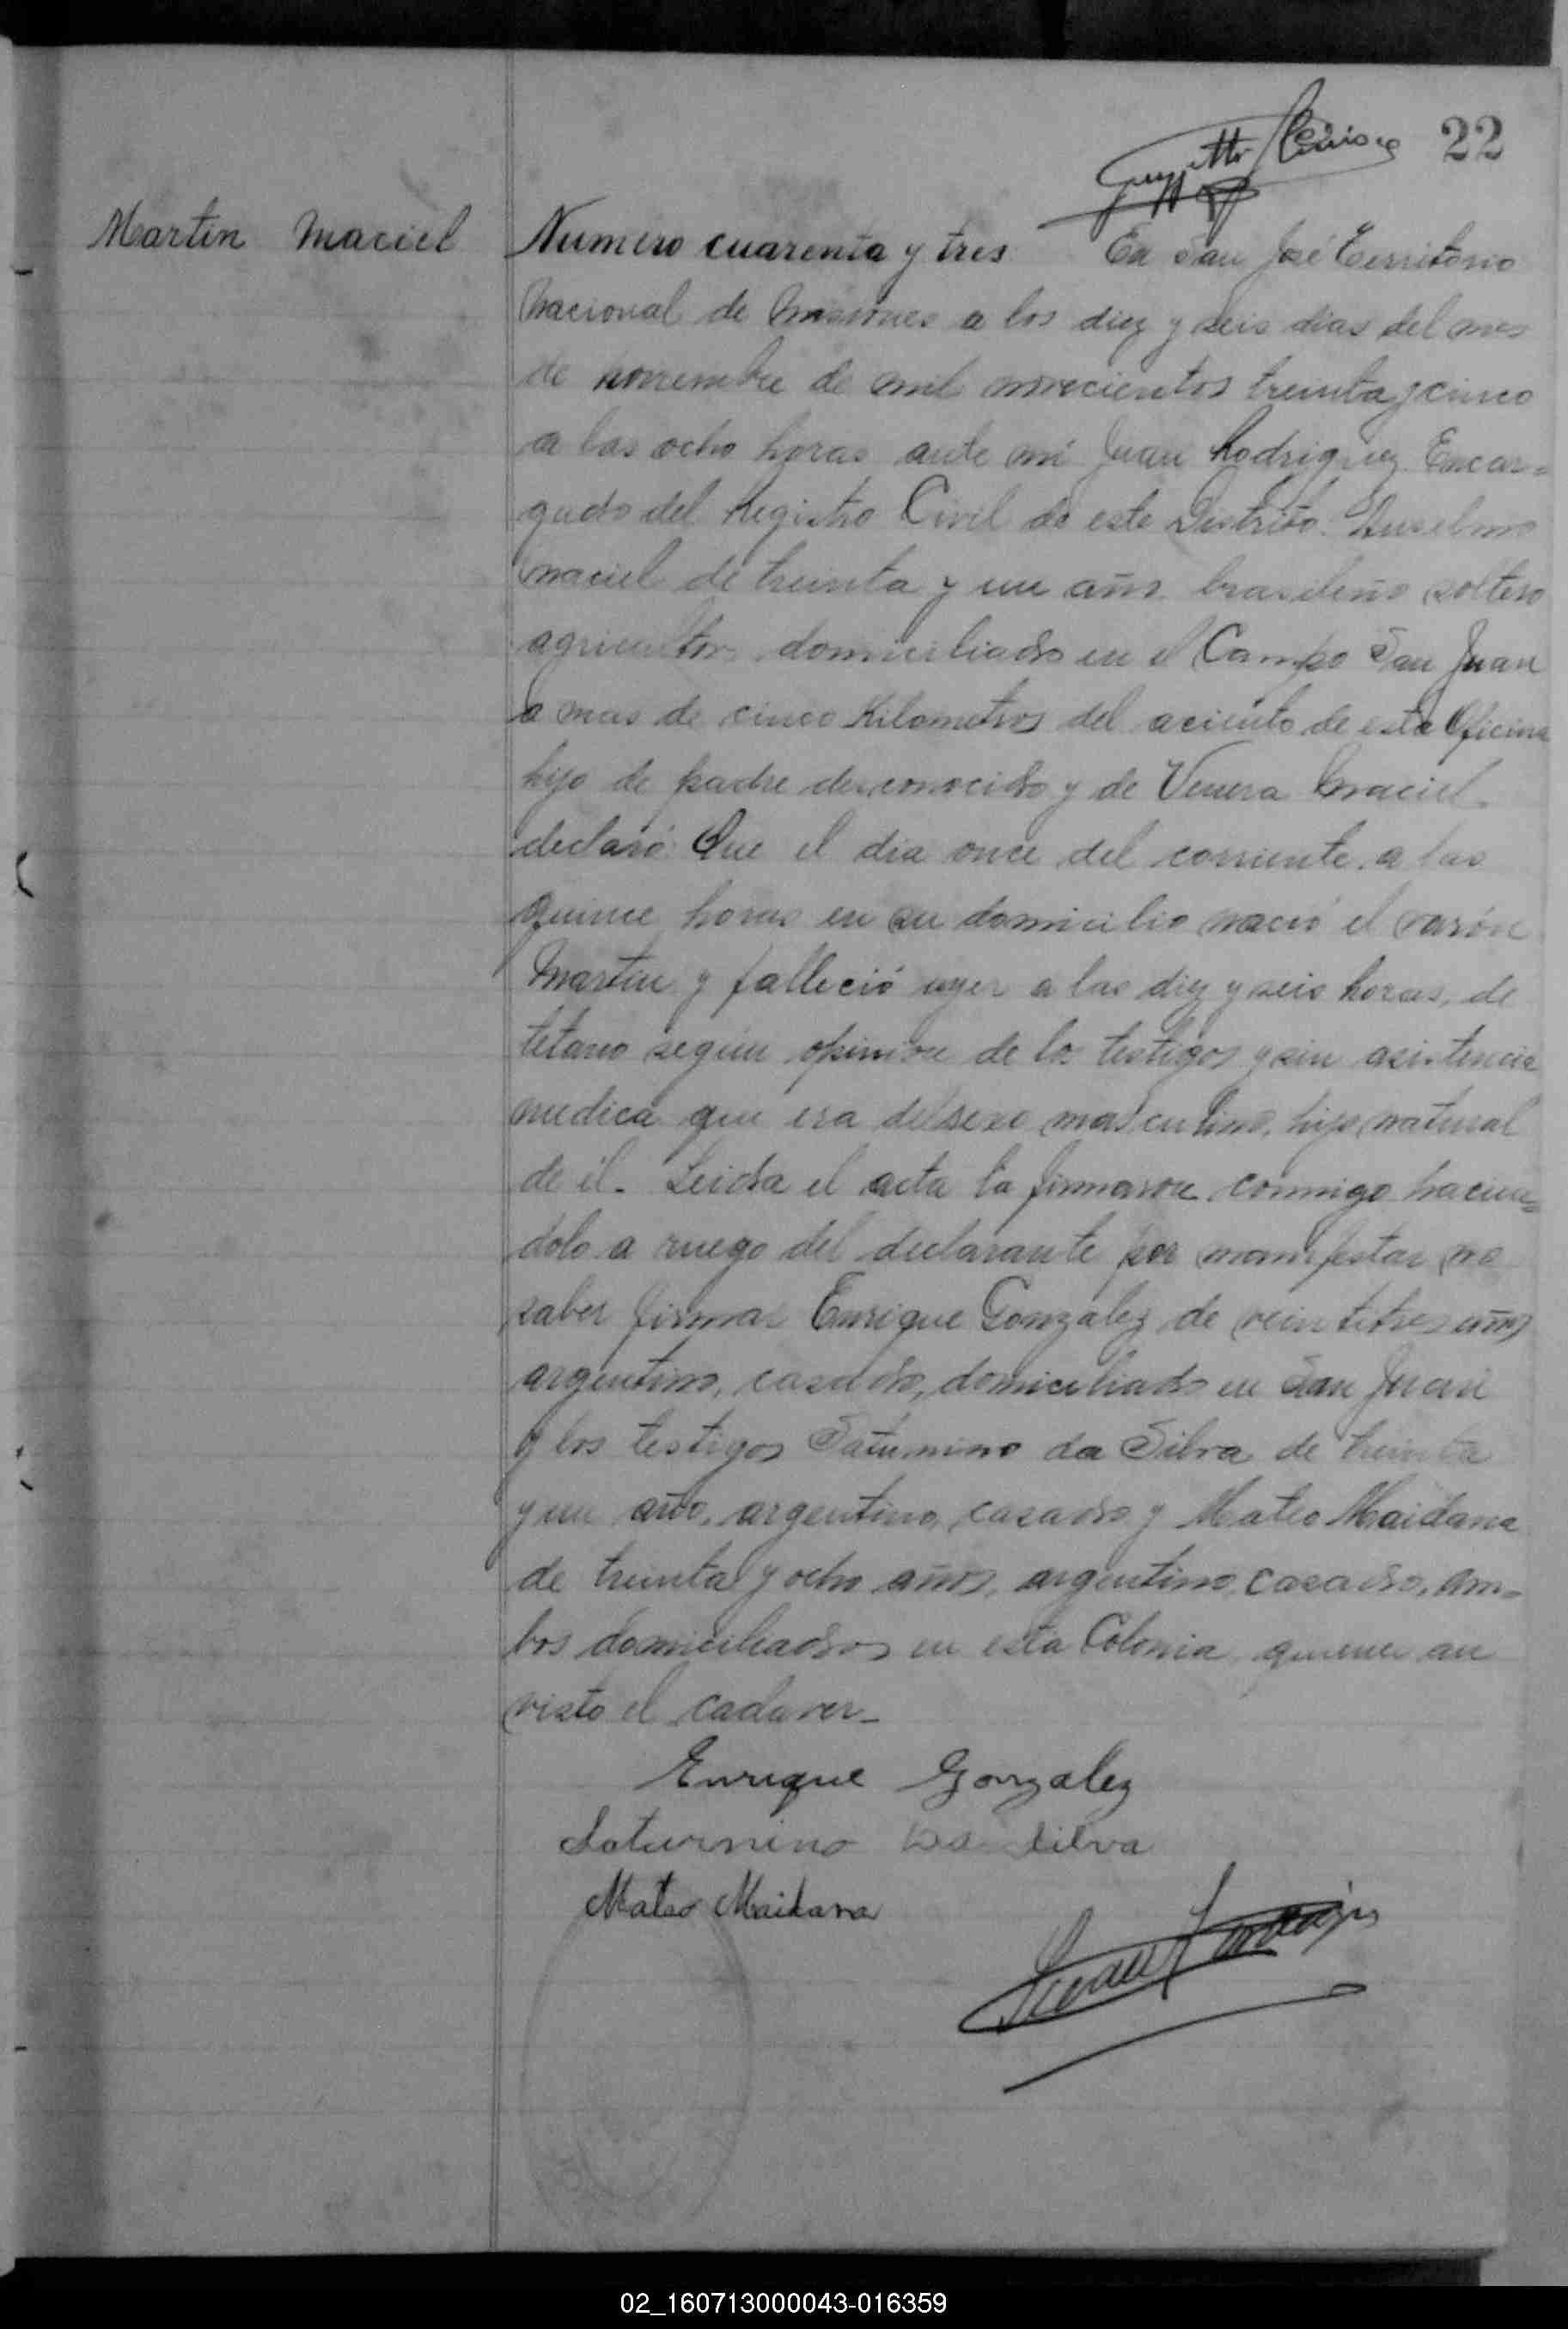 22
Martin Maciel
Numero cuarenta y tres En San José Territorio
Nacional de Misiones a los diez y seis dias del mes
de noviembre de mil novecientos treinta y cinco
a las ocho horas ante mi Juan Rodriguez Encar=
gado del Registro Civil de este Distrito. Anselmo
Maciel de treinta y un años brasileño soltero
agricultor domiciliado en el Campo San Juan
a mas de cinco Kilometros del aciento de esta Oficina
hijo de padre desconocido y de Venera Maciel
declaró: Que el dia once del corriente a las
quince horas en su domicilio nació el varón
Martin y falleció ayer a las diez y seis horas, de
tetano según opinion de los testigos y sin asistencia
medica que era del sexo masculino, hijo natural
de él. Leida el acta la firmaron conmigo hacien=
dolo a ruego del declarante por manifestar no
saber firmar Enrique Gonzalez de veintitres años
argentino, casado, domiciliado en San Juan
y los testigos Saturnino da Silva de treinta
y un año, argentino, casado y Mateo Maidana
de treinta y ocho años, argentino, casado, am=
bos domiciliados en esta Colonia quienes an
visto el cadaver_
Enrique Gonzalez
Saturnino Da Silva
Mateo Maidana
Juan Rodriguez
02_160713000043-016359